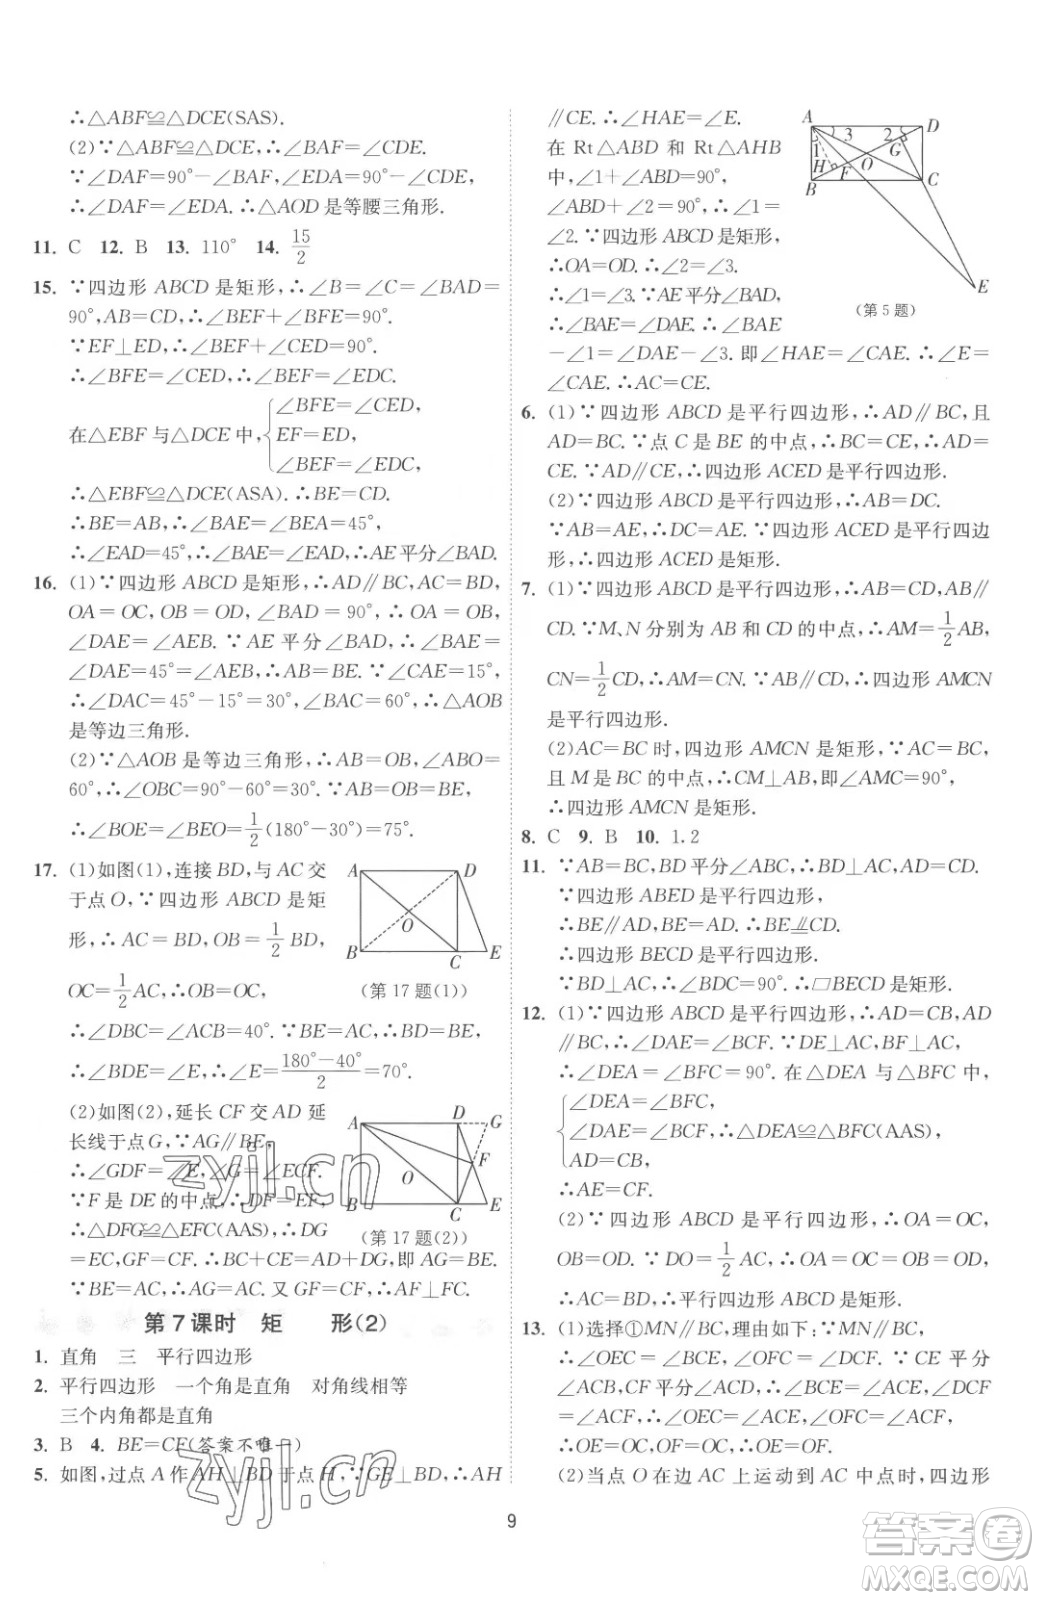 ∴△ABF≌△DCE(SAS).
(2)∵△ABF≌△DCE,∴∠BAF=∠CDE.
∵∠DAF=90°-∠BAF,∠EDA=90°-∠CDE,
∴∠DAF=∠EDA.∴△AOD是等腰三角形.
11. C 12. B 13. 110° 14. 15/2
15. ∵四边形 ABCD 是矩形,∴∠B=∠C=∠BAD=
90°,AB=CD,∴∠BEF+∠BFE=90°.
∵EF⊥ED,∴∠BEF+∠CED=90°.
∴∠BFE=∠CED,∴∠BEF=∠EDC.
在△EBF 与△DCE 中,{∠BFE=∠CED,
EF=ED,
∠BEF=∠EDC,
∴△EBF≌△DCE(ASA).∴BE=CD.
∴BE=AB,∴∠BAE=∠BEA=45°,
∴∠EAD=45°,∴∠BAE=∠EAD,∴AE平分∠BAD.
16. (1)∵四边形 ABCD 是矩形,∴AD∥BC,AC=BD,
OA=OC,OB=OD,∠BAD=90°,∴OA=OB,
∠DAE=∠AEB.∵AE 平分∠BAD,∴∠BAE=
∠DAE=45°=∠AEB,∴AB=BE.∵∠CAE=15°,
∴∠DAC=45°-15°=30°,∠BAC=60°,∴△AOB
是等边三角形.
(2)∵△AOB是等边三角形,∴AB=OB,∠ABO=
60°,∴∠OBC=90°-60°=30°.∵AB=OB=BE,
∴∠BOE=∠BEO=1/2(180°-30°)=75°.
17. (1)如图(1),连接 BD,与 AC 交
于点O,∵四边形 ABCD 是矩
形,∴AC=BD,OB=1/2BD,
OC=1/2AC,∴OB=OC,
A D O B C E
(第 17 题(1))
∴∠DBC=∠ACB=40°.∵BE=AC,∴BD=BE,
∴∠BDE=∠E,∴∠E=(180°-40°)/2=70°.
(2)如图(2),延长 CF 交 AD 延
长线于点G,∵AG∥BE,
∴∠GDF=∠E.
∵F 是 DE 的中点,
∴△DFG≌△EFC(AAS),∴DG
A D G F O B C E
(第 17 题(2))
=EC,GF=CF,∴CE+AD=AD+DG,即AG=BE.
∵BE=AC,∴AG=AC.又 GF=CF,∴AF⊥FC.
第 7 课时 矩 形(2)
1. 直角 三 平行四边形
2. 平行四边形 一个角是直角 对角线相等
三个内角都是直角
3. B 4. BE=CF(答案不唯一)
5. 如图,过点 A 作AH⊥BD 于点 H,∵GE⊥BD,∴AH
∥CE.∴∠HAE=∠E.
在 Rt△ABD 和 Rt△AHB
中,∠1+∠ABD=90°,
∠ABD+∠2=90°,∴∠1=
∠2.∵四边形ABCD是矩形,
∴OA=OD.∴∠2=∠3.
∴∠1=∠3.∵AE平分∠BAD,
∴∠BAE=∠DAE.∴∠BAE
A D 1 3 2 G H F O B C E
(第 5 题)
-∠1=∠DAE-∠3.即∠HAE=∠CAE.∴∠E=
∠CAE.∴AC=CE.
6. (1)∵四边形 ABCD 是平行四边形,∴AD∥BC,且
AD=BC.∵点 C 是 BE 的中点,∴BC=CE,∴AD=
CE.∵AD∥CE,∴四边形 ACED 是平行四边形.
(2)∵四边形 ABCD 是平行四边形,∴AB=DC.
∵AB=AE,∴DC=AE.∵四边形 ACED 是平行四边
形,∴四边形 ACED 是矩形.
7. (1)∵四边形 ABCD 是平行四边形,∴AB=CD,AB∥
CD.∵M、N 分别为 AB 和 CD 的中点,∴AM=1/2AB,
CN=1/2CD,∴AM=CN.∵AB∥CD,∴四边形 AMCN
是平行四边形.
(2)AC=BC 时,四边形 AMCN 是矩形,∵AC=BC,
且 M 是 BC 的中点,∴CM⊥AB,即∠AMC=90°,
∴四边形 AMCN 是矩形.
8. C 9. B 10. 1.2
11. ∵AB=BC,BD 平分∠ABC,∴BD⊥AC,AD=CD.
∵四边形 ABED 是平行四边形,
∴BE∥AD,BE=AD.∴BE⫽CD.
∴四边形 BECD 是平行四边形.
∵BD⊥AC,∴∠BDC=90°.∴▱BECD是矩形.
12. (1)∵四边形 ABCD 是平行四边形,∴AD=CB,AD
∥BC,∴∠DAE=∠BCF.∵DE⊥AC,BF⊥AC,
∴∠DEA=∠BFC=90°.在△DEA 与△BFC 中,
{∠DEA=∠BFC,
∠DAE=∠BCF,∴△DEA≌△BFC(AAS),
AD=CB,
∴AE=CF.
(2)∵四边形 ABCD 是平行四边形,∴OA=OC,
OB=OD.∵DO=1/2AC,∴OA=OC=OB=OD,
∴AC=BD,∴平行四边形 ABCD 是矩形.
13. (1)选择①MN∥BD.理由如下:∵MN∥BD,
∴∠OEC=∠BCE,∠OFC=∠DCF.∵CE 平分
∠ACB,CF 平分∠ACD,∴∠ACE=∠BCE,∠DCF
=∠ACF,∴∠OEC=∠ACE,∠OFC=∠ACF,
∴OE=OC,OF=OC,∴OE=OF.
(2)当点 O 在边 AC 上运动到 AC 中点时,四边形
9
zyjl.cn
zyjl.cn
答案卷
MXQE.COM